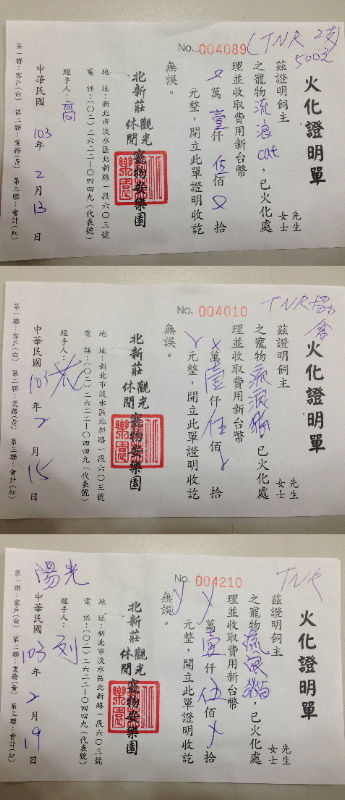 火化證明單
(TNR 2支)
5002
No. 004089
茲證明飼主 先生 女士
之寵物流浪cat,已火化處
理並收取費用新台幣
萬壹仟伍佰 拾
元整,開立此單證明收訖
無誤。
北新莊 觀光休閒 寵物安樂園
地 址:新北市淡水區北新路一段六〇三號
電 話:(〇二)二六二二—〇四四九(代表號)
經手人:高
中華民國 103 年 2 月 13 日
第一聯:客戶(白) 第二聯:業務(黃) 第三聯:會計(紅)
火化證明單
TNR
No. 004010
茲證明飼主 先生 女士
之寵物流浪貓,已火化處
理並收取費用新台幣
萬壹仟伍佰 拾
元整,開立此單證明收訖
無誤。
北新莊 觀光休閒 寵物安樂園
地 址:新北市淡水區北新路一段六〇三號
電 話:(〇二)二六二二—〇四四九(代表號)
經手人:
中華民國 103 年 2 月 15 日
第一聯:客戶(白) 第二聯:業務(黃) 第三聯:會計(紅)
火化證明單
TNR
No. 004210
茲證明飼主 先生 女士
之寵物流浪貓,已火化處
理並收取費用新台幣
萬壹仟伍佰 拾
元整,開立此單證明收訖
無誤。
北新莊 觀光休閒 寵物安樂園
地 址:新北市淡水區北新路一段六〇三號
電 話:(〇二)二六二二—〇四四九(代表號)
經手人:列
陽光
中華民國 103 年 2 月 19 日
第一聯:客戶(白) 第二聯:業務(黃) 第三聯:會計(紅)